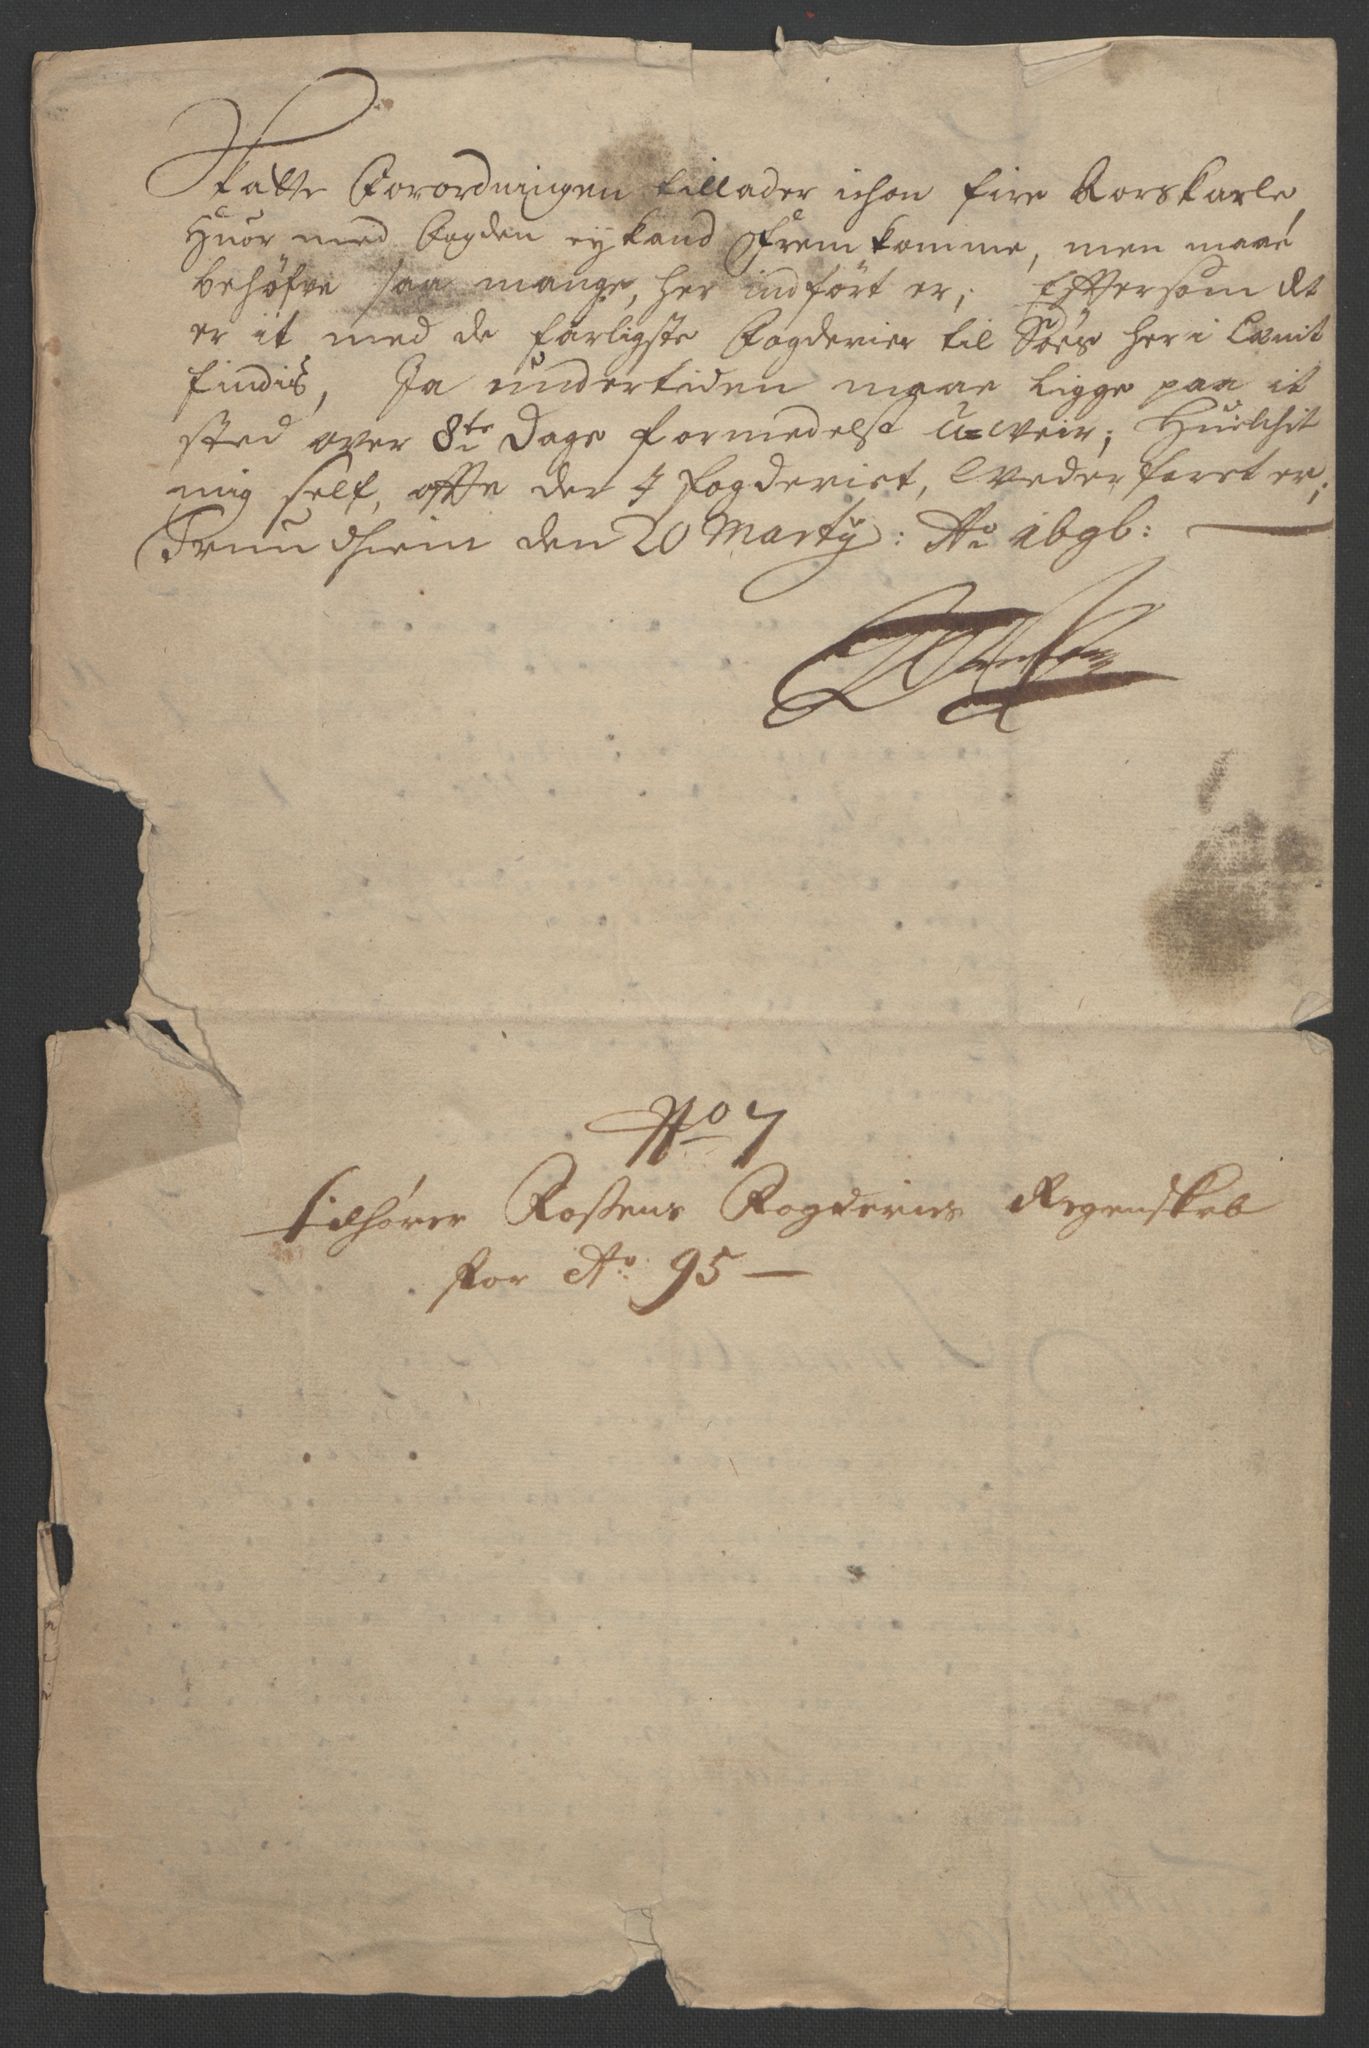 Skatte Forordningen tillader ichon fire Rorskarle,
Huor med Fogden ey kand Fremkomme, men maae
behøfve saa mange, her indført er; Efftersom dt
er it med de farligste Fogderier til Søes her i Landt
findis, Ja undertiden maae ligge paa it
sted over 8te Dage formedelst U=Veir; Huilchit
mig self, offte der i fogderiet, Vederfaret er;
Trundhiem den 20 Martÿ: Ao 1696:
No 7
tilhører Foßens Fogderies Regenskab
for Ao 95 —